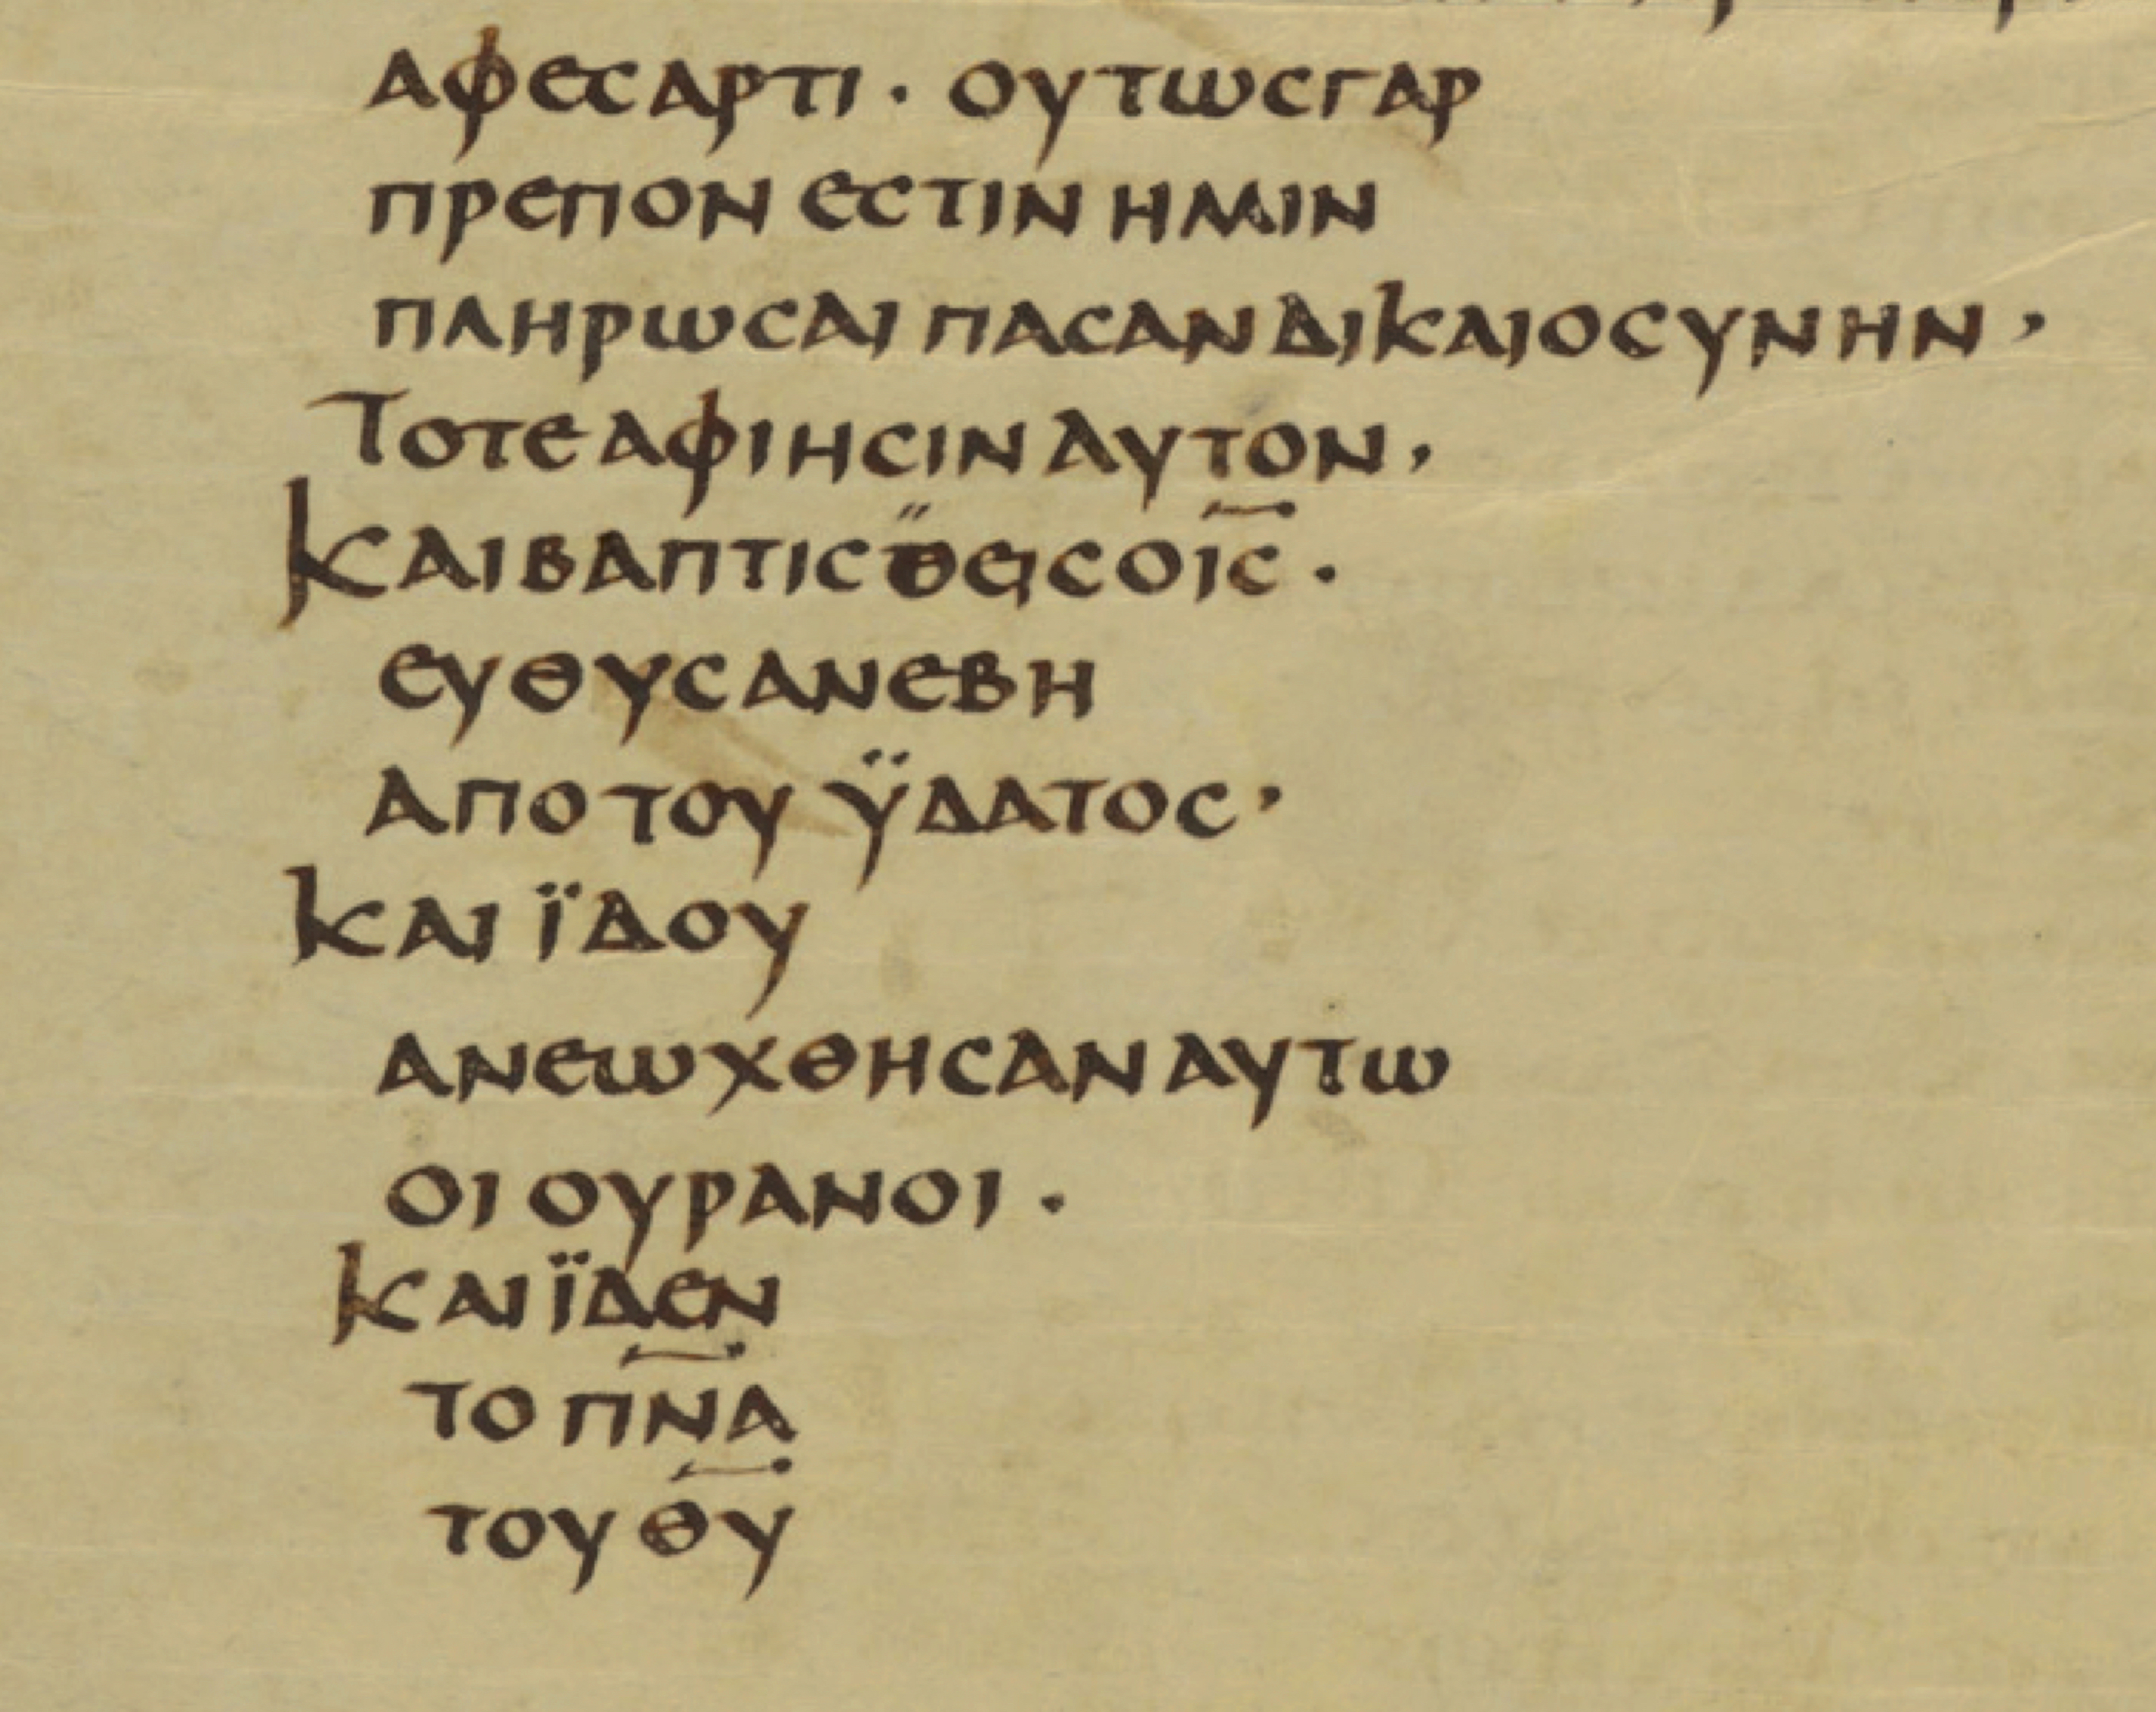 αφεсαρτι · ουτωсγαρ
πρεπον εсτιν ημιν
πληρωсαι παсαν δικαιοсυνην ·
Τοτε αφιηсιν αυτον ·
Και βαπτιсθειс ο ι̅с̅ ·
ευθυс ανεβη
απο του ϋδατοс ·
Και ϊδου
ανεωχθηсαν αυτω
οι ουρανοι ·
Και ϊδεν
το πν̅α̅
του θ̅υ̅